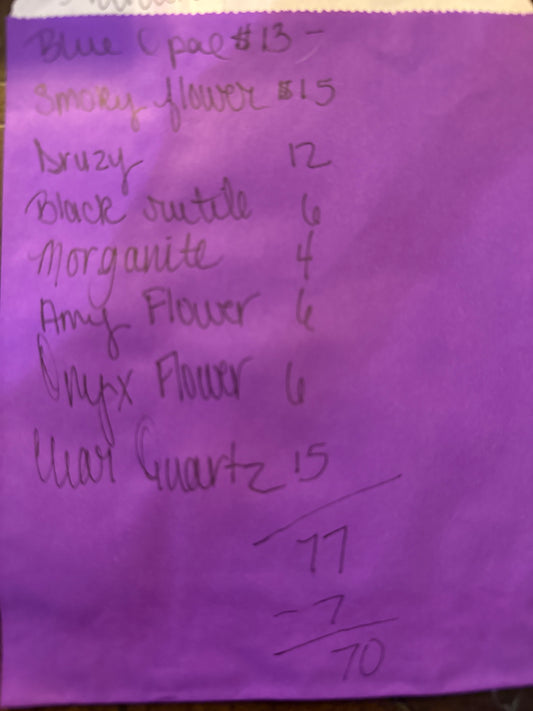 Blue Opal $13 -
Smoky flower $15
Druzy 12
Black rutile 6
Morganite 4
Amy Flower 6
Onyx Flower 6
Clear Quartz 15
77
- 7
70